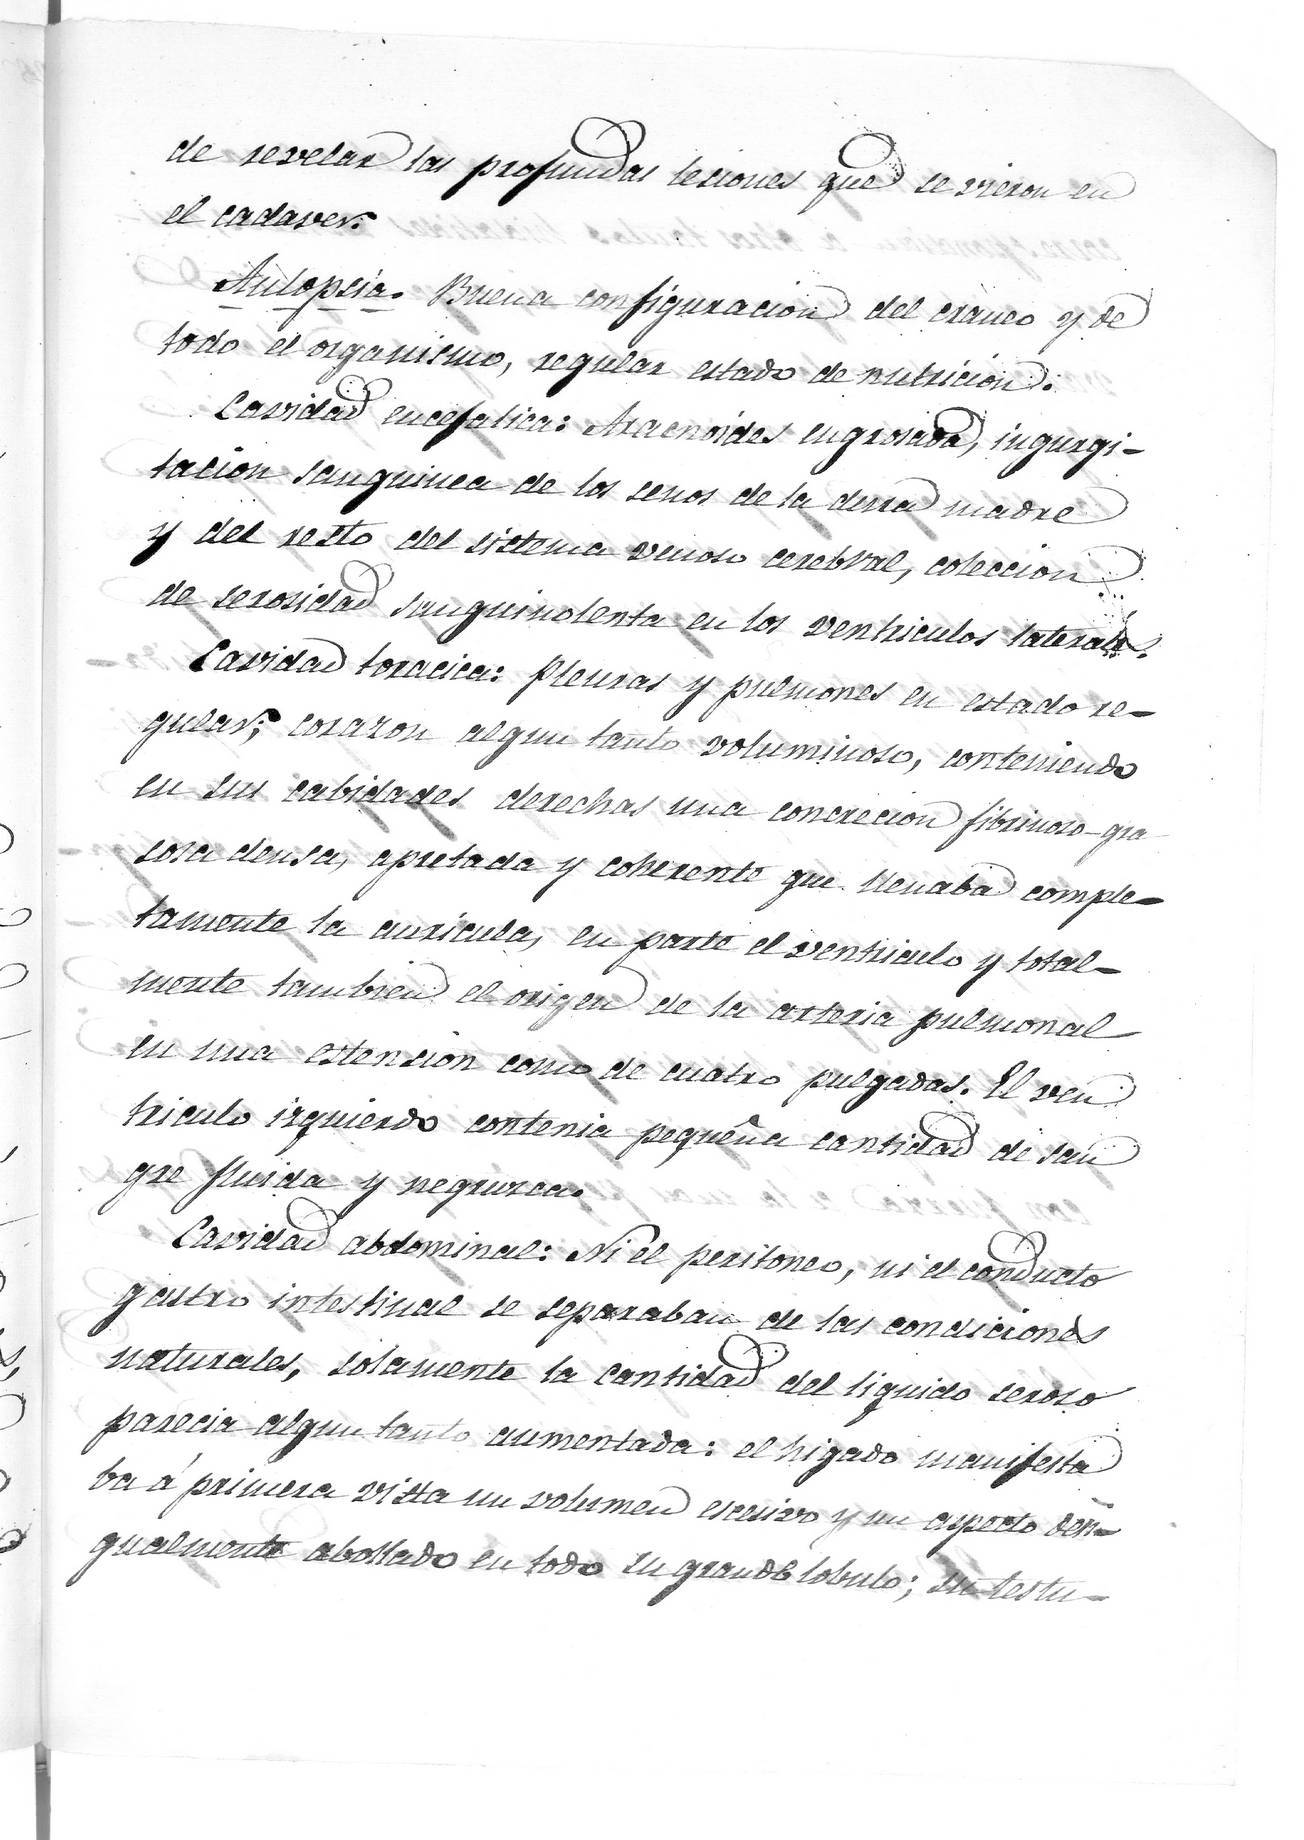 de revelar las profundas lesiones que se vieron en
el cadaver.
Autopsia. Buena configuracion del cráneo y de
todo el organismo, regular estado de nutricion.
Cavidad encefalica: Aracnoides engrosada, ingurgi-
tacion sanguinea de los senos de la dura madre
y del resto del sistema venoso cerebral, coleccion
de serosidad sanguinolenta en los ventriculos laterales.
Cavidad toracica: Pleuras y pulmones en estado re-
gular; corazon algun tanto voluminoso, conteniendo
en sus cabidades derechas una concrecion fibrinoso-gra
sosa densa, apretada y coherente que llenaba comple-
tamente la auricula, en parte el ventriculo y total-
mente tambien el origen de la arteria pulmonal
en una estension como de cuatro pulgadas. El ven
triculo izquierdo contenia pequeña cantidad de san
gre fluida y negruzca.
Cavidad abdominal: Ni el peritoneo, ni el conducto
gastro intestinal se separaban de las condiciones
naturales, solamente la cantidad del liquido seroso
parecia algun tanto aumentada: el higado manifesta
ba á primera vista un volumen escesivo y un aspecto
gualmente abollado en todo su grande lobulo; su testu-